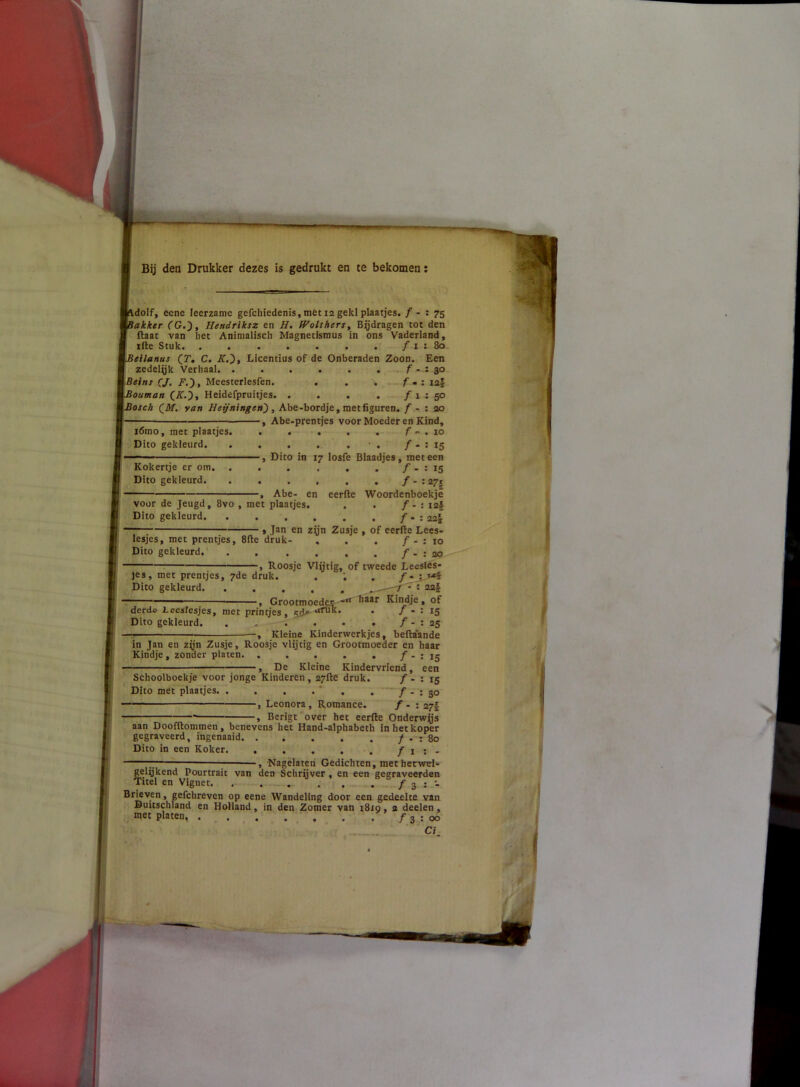 Bij den Drukker dezes is gedrukt en te bekomen:
Adolf, eene leerzame geſchiedenis, met 12 gekl plaatjes. f - : 75
Bakker (G.), Hendriksz en H. Wolthers, Bijdragen tot den
ſtaat van het Animalisch Magnetismus in ons Vaderland,
1ſte Stuk. . . . . . . . f 1 : 80
Beilanus (T. C. K.), Licentius of de Onberaden Zoon. Een
zedelijk Verhaal. . . . . . . f - : 30
Beins (J. F.), Meesterlesſen. . . . f - : 12½
Bouman (K.), Heidefpruitjes. . . . . f 1 : 50
Bosch (M. van Heijningen), Abe-bordje, met figuren. f - : 20
———, Abe-prentjes voor Moeder en Kind,
16mo, met plaatjes. . . . . . f - . 10
Dito gekleurd. . . . . . . f - : 15
———, Dito in 17 losſe Blaadjes, met een
Kokertje er om. . . . . . . f - : 15
Dito gekleurd. . . . . . . f - : 27½
———, Abe- en eerſte Woordenboekje
voor de Jeugd, 8vo, met plaatjes. . . f - : 12½
Dito gekleurd. . . . . . . f - : 22½
———, Jan en zijn Zusje, of eerſte Lees-
lesjes, met prentjes, 8ſte druk- . . . f - : 10
Dito gekleurd. . . . . . . f - : 20
———, Roosje Vlijtig, of tweede Leesles-
jes, met prentjes, 7de druk. . . . f - : 12½
Dito gekleurd. . . . . . . f - : 22½
———, Grootmoeder haar Kindje, of
derde Leeslesjes, met printjes, druk. . f - : 15
Dito gekleurd. . . . . . . f - : 25
———, Kleine Kinderwerkjes, beſtaande
in Jan en zijn Zusje, Roosje vlijtig en Grootmoeder en haar
Kindje, zonder platen. . . . . . f - : 15
———, De Kleine Kindervriend, een
Schoolboekje voor jonge Kinderen, 27ſte druk. f - : 15
Dito met plaatjes. . . . . . . f - : 30
———, Leonora, Romance. f - : 27½
———, Berigt over het eerſte Onderwijs
aan Doofſtommen, benevens het Hand-alphabeth in het koper
gegraveerd, ingenaaid. . . . . . f - : 80
Dito in een Koker. . . . . . f 1 : -
———, Nagelaten Gedichten, met het wel-
gelijkend Pourtrait van den Schrijver, en een gegraveerden
Titel en Vignet. . . . . . . f 3 : -
Brieven, geſchreven op eene Wandeling door een gedeelte van
Duitschland en Holland, in den Zomer van 1819, 2 deelen,
met platen, . . . . . . . f 3 : 00
Ci_